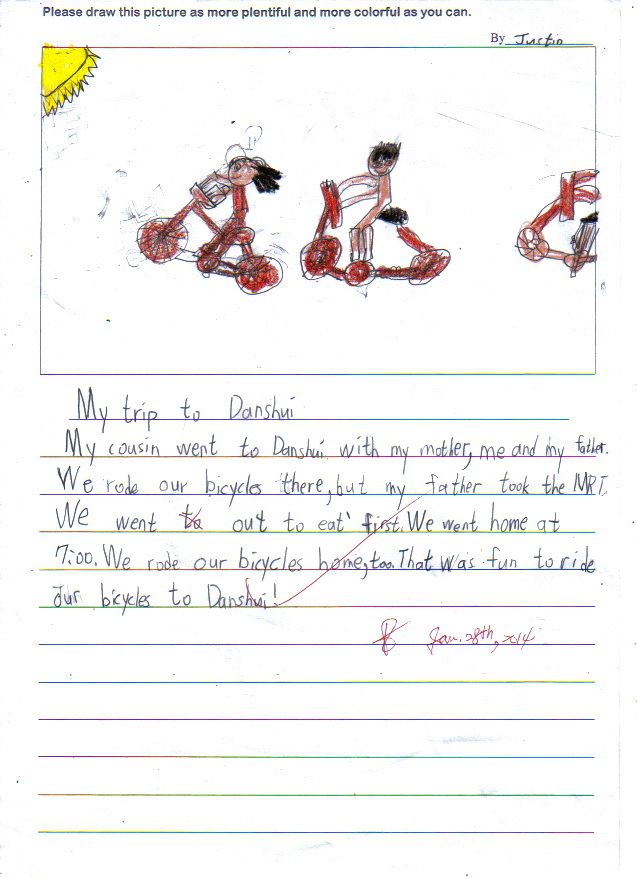 Please draw this picture as more plentiful and more colorful as you can.
By Justin
My trip to Danshui
My cousin went to Danshui with my mother, me and my father.
We rode our bicycles there, but my father took the MRT.
We went to out to eat first. We went home at
7:00. We rode our bicycles home, too. That was fun to ride
our bicycles to Danshui!
Jan. 28th, 2014